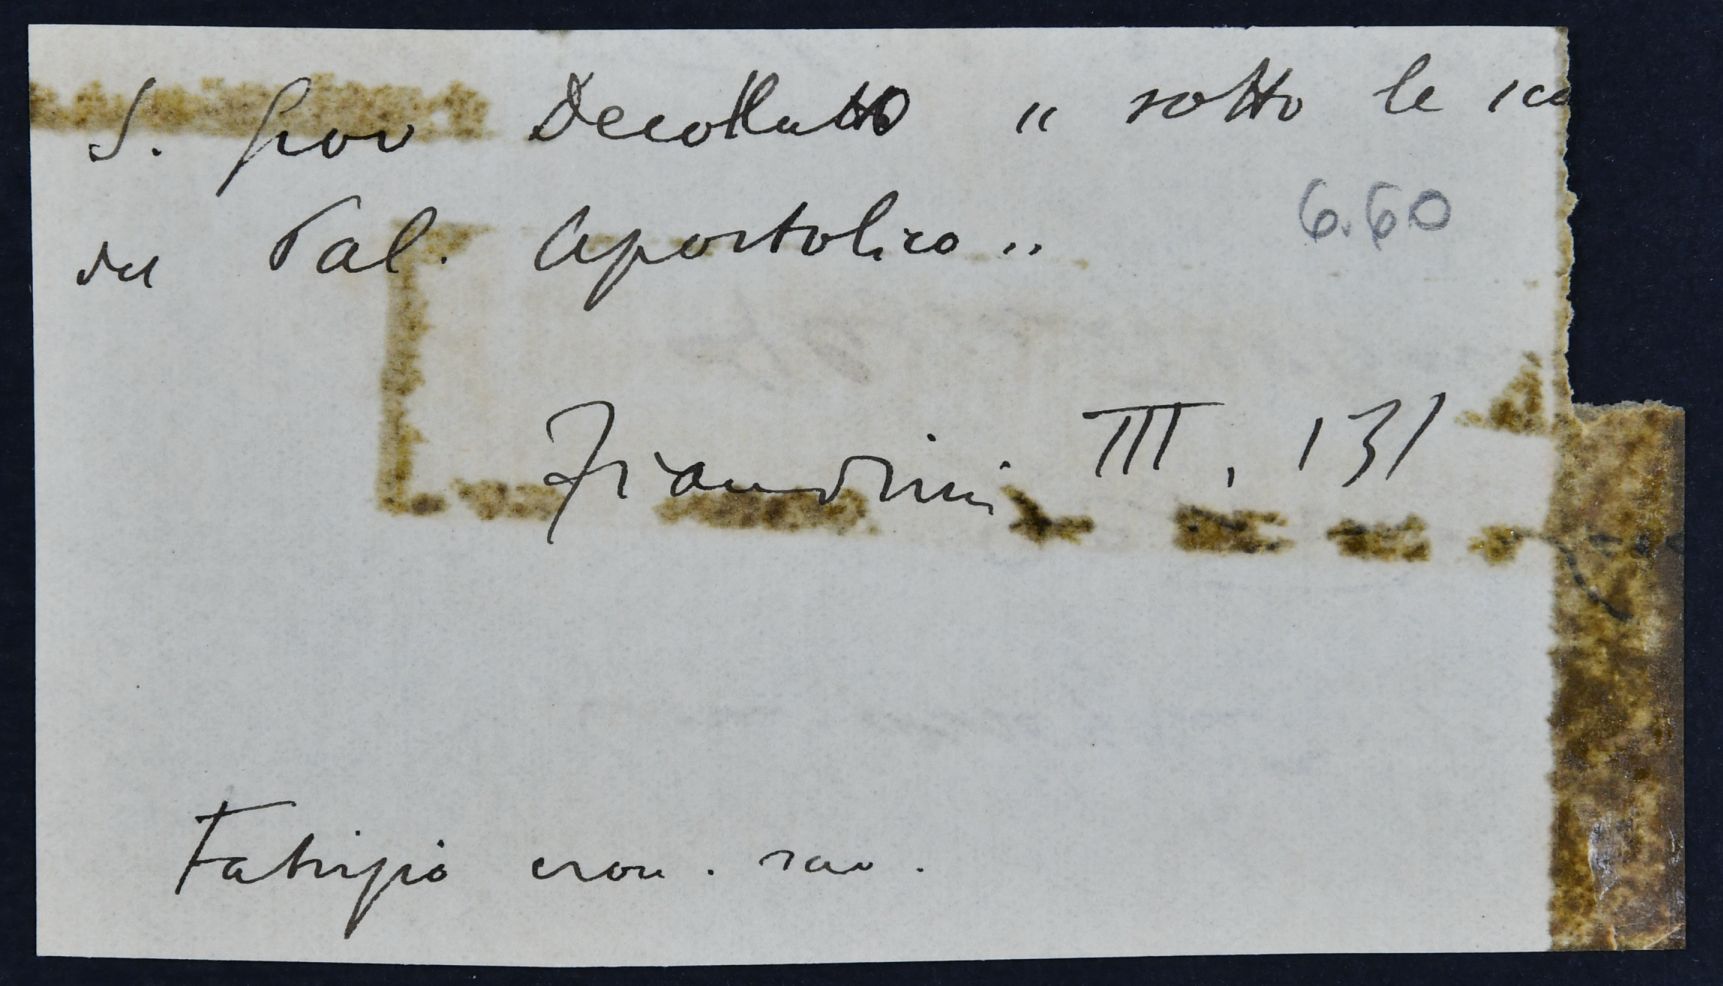 S. Giov Decollatto " sotto le sca
del Pal. Apostolico "
6.60
Fiandrini III, 131
Fabrizio cron. rav.